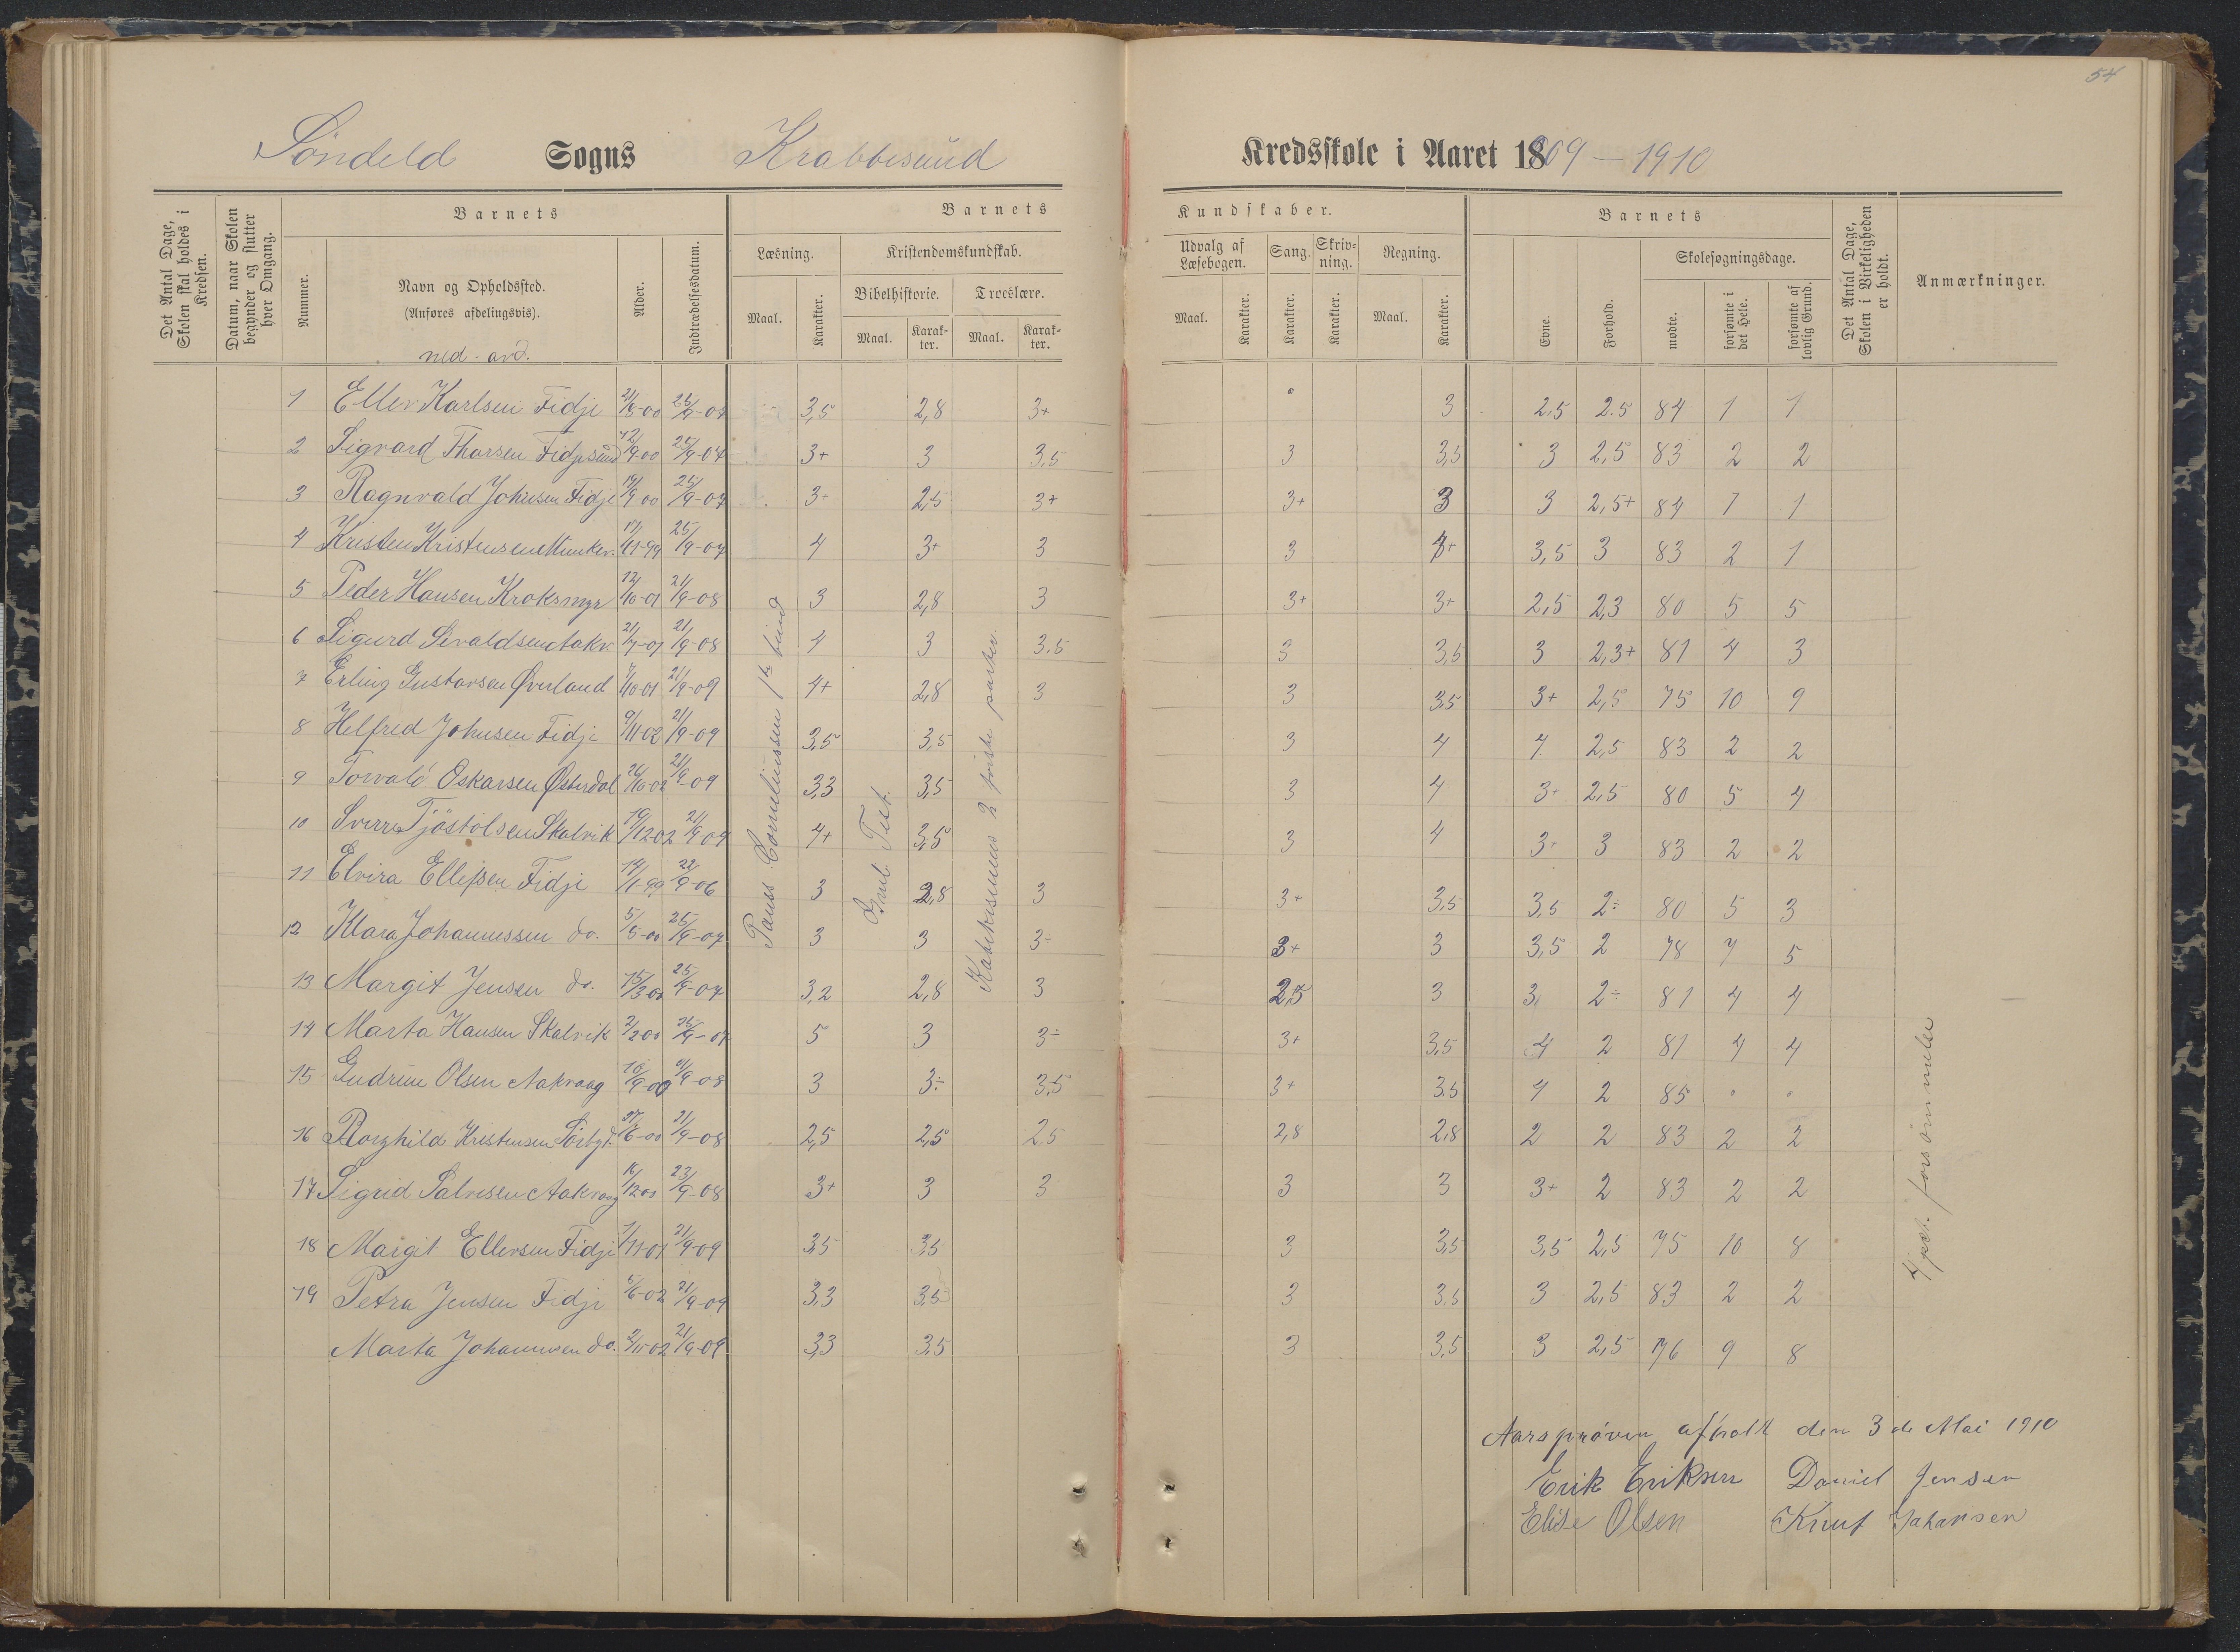 54
Søndeld Sogns Krabbesund Kredsskole i Aaret 1909 – 1910
Det Antal Dage, Skolen skal holdes i Kredsen.
Datum, naar Skolen begynder og slutter hver Omgang.
Barnets
Nummer.
Navn og Opholdssted.
(Anføres afdelingsvis).
ned - avd.
Alder.
Indtrædelsesdatum.
Barnets
Læsning.
Maal.
Karakter.
Kristendomskundskab.
Bibelhistorie.
Maal.
Karakter.
Troeslære.
Maal.
Karakter.
Kundskaber.
Udvalg af Læsebogen.
Maal.
Karakter.
Sang.
Karakter.
Skrivning.
Karakter.
Regning.
Maal.
Karakter.
Barnets
Evne.
Forhold.
Skolesøgningsdage.
mødte.
forsømte i det Hele.
forsømte af lovlig Grund.
Det Antal Dage, Skolen i Virkeligheden er holdt.
Anmærkninger.
1 Ellev Karlsen Fidje 21/8-00 25/9-07 3,5 2,8 3+ 3 2,5 2.5 84 1 1
2 Sigvard Thorsen Fidjesund 12/9-00 25/9-07 3+ 3 3,5 3 3,5 3 2,5 83 2 2
3 Ragnvald Johnsen Fidje 19/9-00 25/9-07 3- 2,5 3+ 3+ 3 3 2,5+ 84 1 1
4 Kristen Kristensen Munker. 17/11-99 25/9-07 4 3+ 3 3 4+ 3,5 3 83 2 1
5 Peder Hansen Kroksmyr 12/10-01 21/9-08 3 2,8 3 3+ 3+ 2,5 2,3 80 5 5
6 Sigurd Sevaldsen Aakv. 21/7-01 21/9-08 4 3 3.5 3 3,5 3 2,3+ 81 4 3
7 Erling Gustavsen Øverland 4/10-01 21/9-09 4+ 2,8 3 3 3,5 3+ 2,5 75 10 9
8 Helfred Johnsen Fidje 9/11-02 21/9-09 3,5 3,5 3 4 4 2,5 83 2 2
9 Torvald Oskarsen Østerdal 26/10-02 21/9-09 3,3 3,5 3 4 3+ 2,5 80 5 4
10 Sverre Tjöstolsen Skalvik 19/12-02 21/9-09 4+ 3,5 3 4 3+ 3 83 2 2
11 Elvira Ellefsen Fidje 14/1-99 22/9-06 3 2,8 3 3+ 3,5 3,5 2÷ 80 5 3
12 Klara Johannessen do. 5/5-00 25/9-07 3 3 3÷ 3+ 3 3,5 2 78 7 5
13 Margit Jensen do. 15/3-00 25/9-07 3,2 2,8 3 2,5 3 3 2÷ 81 4 4
14 Marta Hansen Skalvik 2/2-00 25/9-07 5 3 3÷ 3+ 3,5 4 2 81 4 4
15 Gudrun Olsen Aakvaag 10/9-00 21/9-08 3 3÷ 3,5 3+ 3.5 4 2 85
16 Borghild Kristensen Sörbyt. 27/6-00 21/9-08 2,5 2,5 2,5 2,8 2,8 2 2 83 2 2
17 Sigrid Salvesen Aakvaag 16/12-01 23/9-08 3+ 3 3 3 3 3+ 2 83 2 2
18 Margit Ellevsen Fidje 1/11-01 21/9-09 3,5 3,5 3 3,5 3,5 2,5 75 10 8
19 Petra Jensen Fidje 5/6-02 21/9-09 3,3 3,5 3 3,5 3 2,5 83 2 2
Marta Johannesen do. 2/11-02 21/9-09 3,3 3,5 3 3,5 3 2,5 76 9 8
Pauss Corneliussen 1ste bind
Gml. Test.
Katekismens 2 första parter.
4 pct. forsömmelse
Aarsprøven afholt den 3de Mai 1910
Erik Eriksen Daniel Jensen
Elise Olsen Knut Johansen